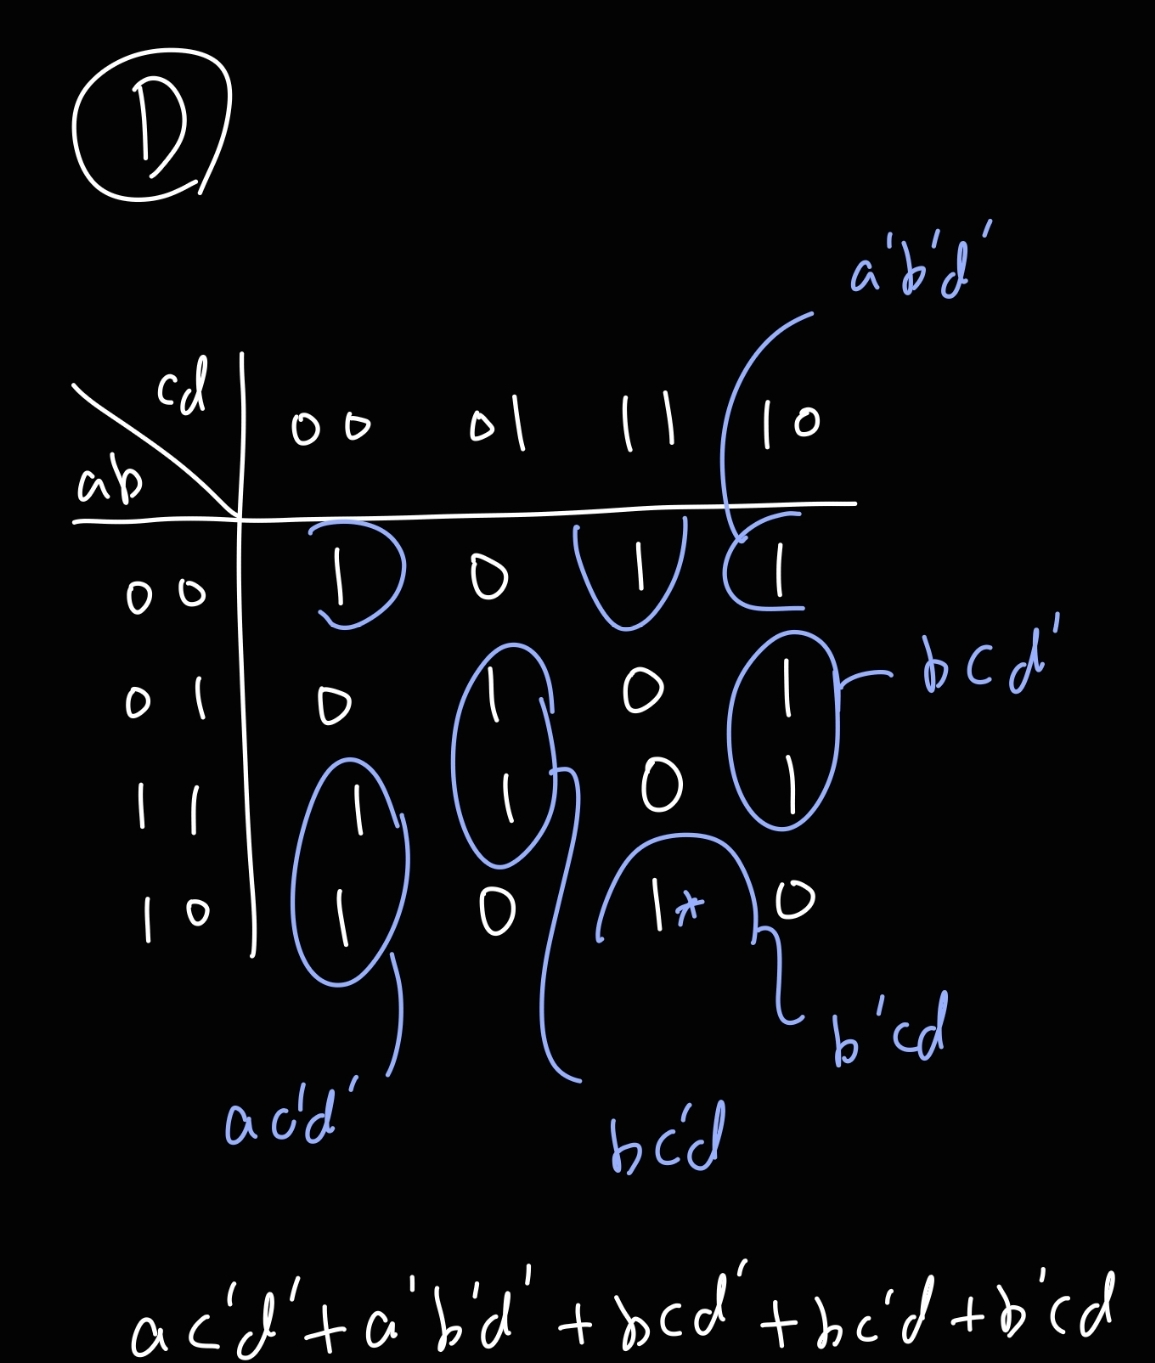 D
a'b'd'
cd
ab
00 01 11 10
00 1 0 1 1
01 0 1 0 1
bcd'
11 1 1 0 1
10 1 0 1* 0
b'cd
ac'd'
bc'd
ac'd' + a'b'd' + bcd' + bc'd + b'cd